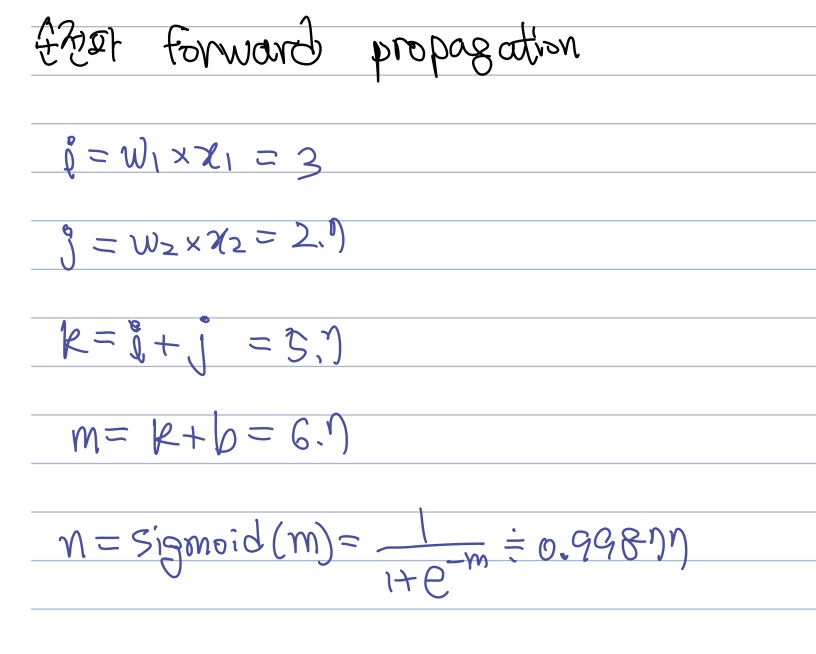 순전파 forward propagation
i = w₁ × x₁ = 3
j = w₂ × x₂ = 2.7
k = i + j = 5.7
m = k + b = 6.7
n = sigmoid(m) = 1 / (1 + e^(-m)) ≑ 0.99877